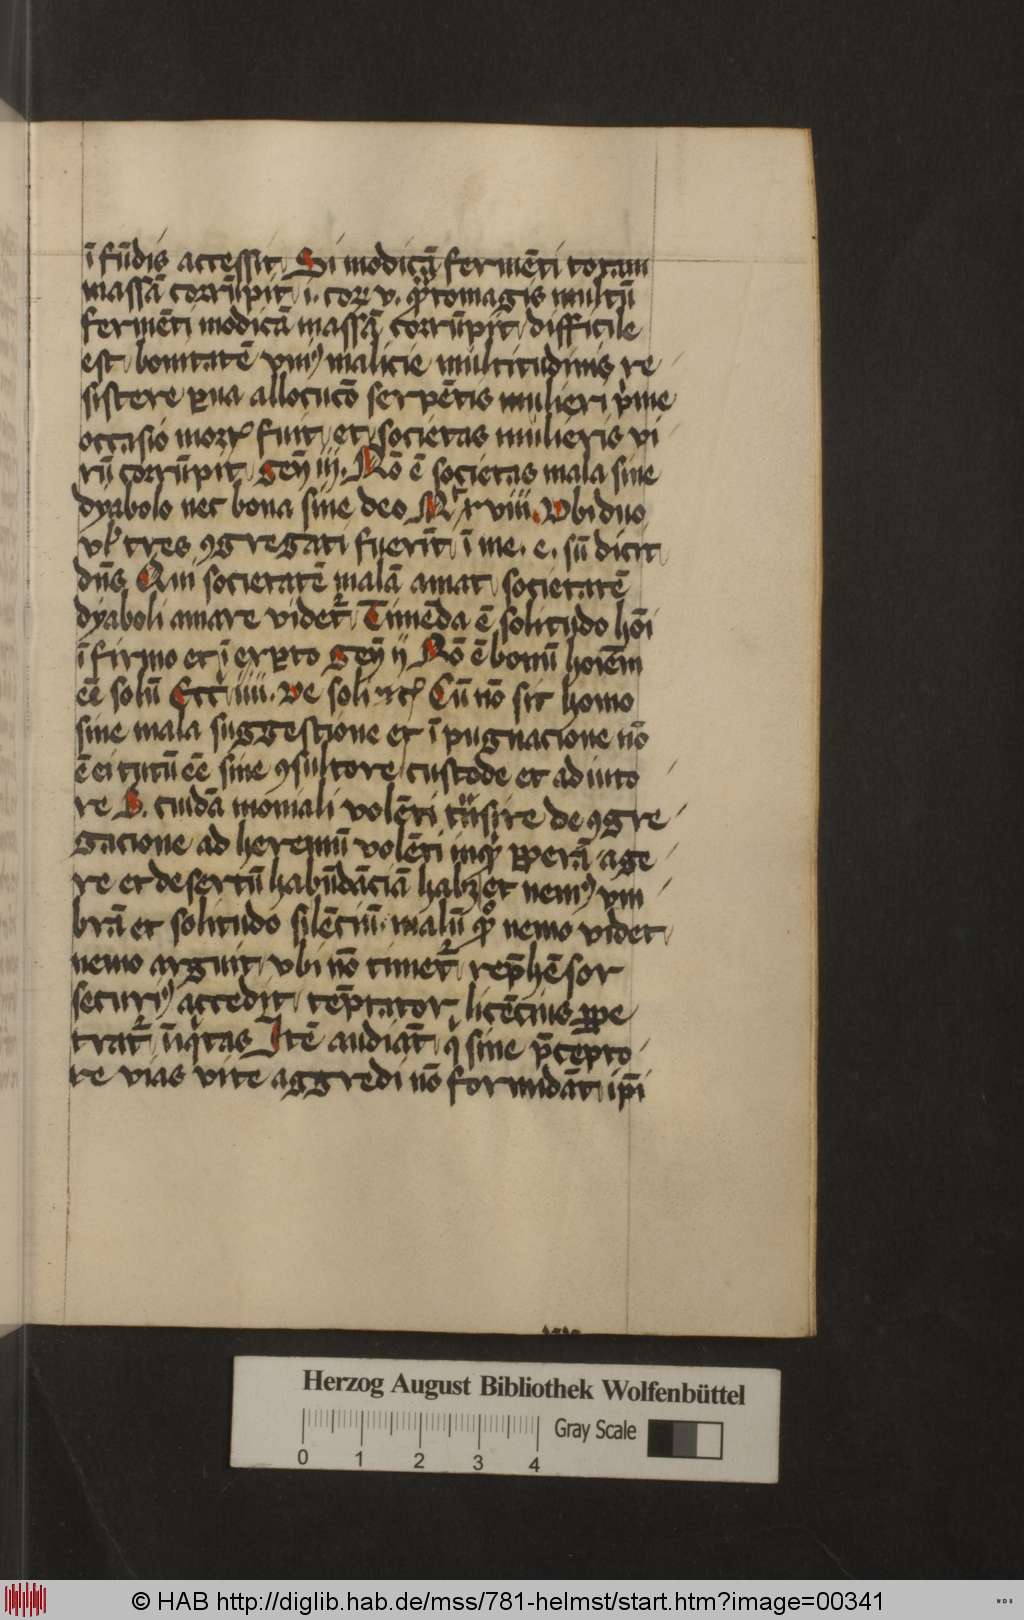 ī fūdis accessit Si modicū fermēti totam
massā corrūpit i. cor v. qͣntomagis multū
fermēti modicā massā corrūpit difficile
est bonitatē vniꝰ malicie multitudinis re
sistere ꝑua allocucō serpētis mulieri pͥme
occasio mortꝭ fuit et societas mulieris vi
rū corrūpit gen̄ iij. Nō ē societas mala sine
dyabolo nec bona sine deo Mͭ xviii. Vbi duo
vl̓ tres ꝯgregati fuerīt ī me. e. sū dicit
dn̄s Qui societatē malā amat societatē
dyaboli amare videtᷣ Timēda ē solitudo hōi
ī firmo et ī exꝑto gen̄ ij Nō ē bonū hoiēm
eē solū Ecc iiii. Ve soli ⁊cꝭ Cū nō sit homo
sine mala suggestione et ī pugnacione nō
ē ei tutū eē sine ꝯsultore custode et adiuto
re B. cuidā moniali volēti tͣnsire de ꝯgre
gacione ad heremū volēti inqͥt ꝓperā age
re et desertū habūdāciā habꝫ et nemꝰ vm
brā et solitudo silēciū. malū qͦꝫ nemo videt
nemo arguit vbi nō timetᷣ rep̄hēsor
securiꝰ accedit tēptator licēcius ꝑpe
tratᷣ īiqͥtas Itē audiāt qͥ sine p̄cepto
re vias vite aggredi nō formidāt ip̄i
Herzog August Bibliothek Wolfenbüttel
Gray Scale
0 1 2 3 4
© HAB http://diglib.hab.de/mss/781-helmst/start.htm?image=00341